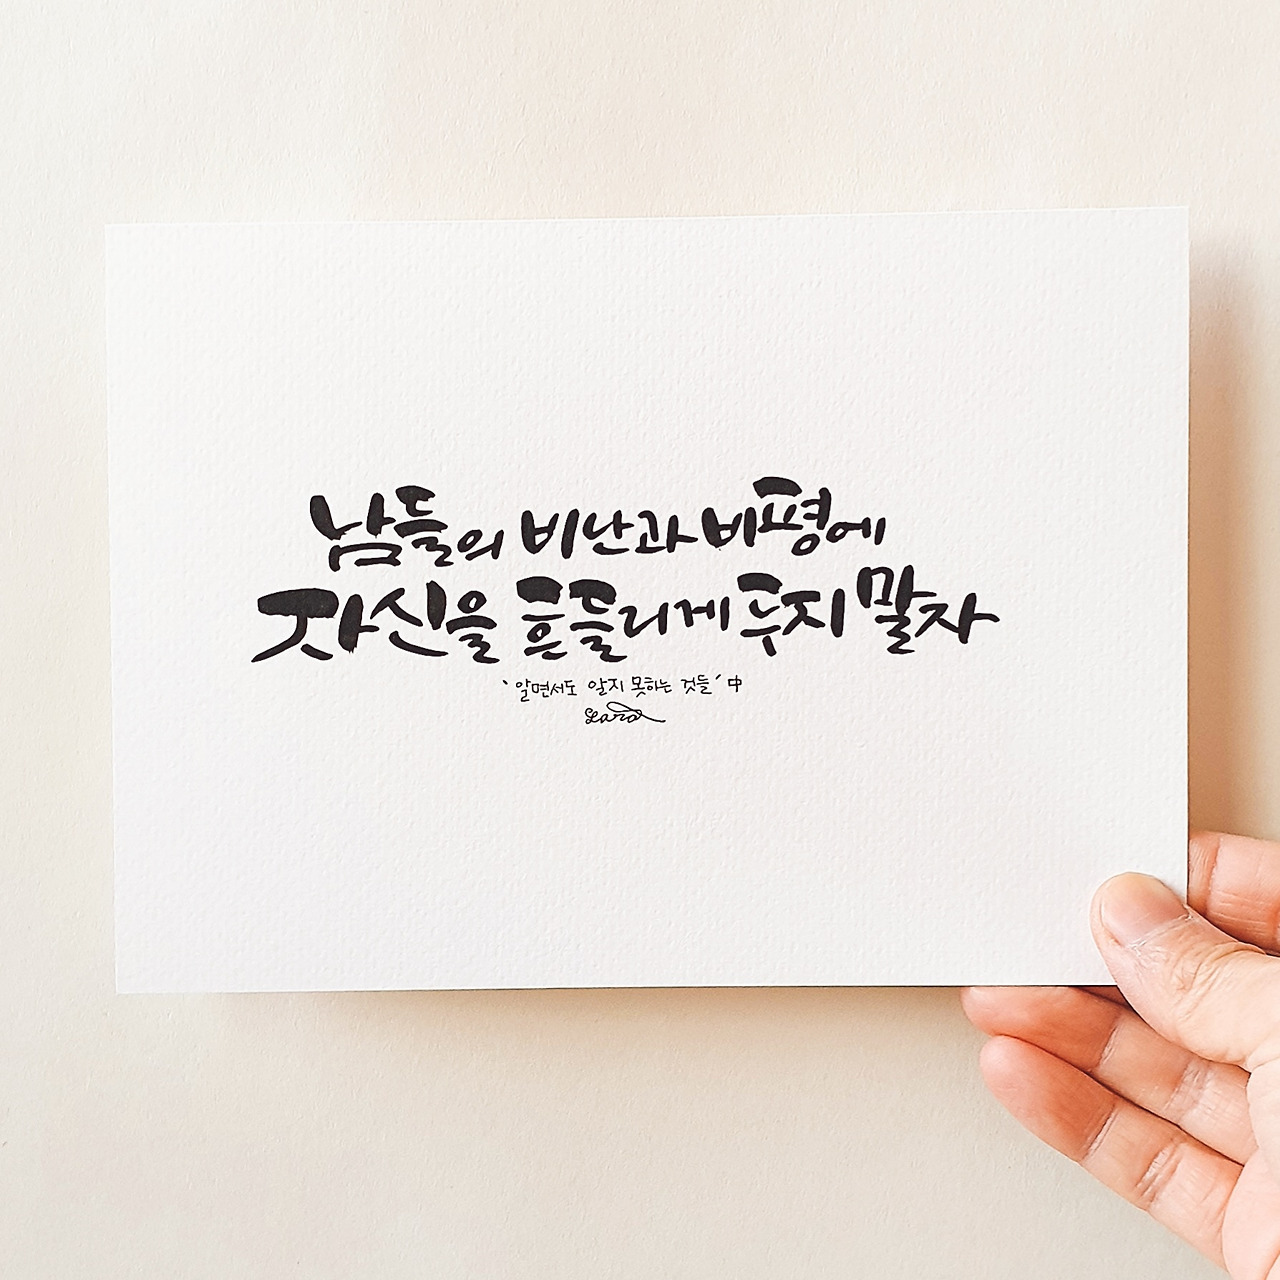 남들의 비난과 비평에
자신을 흔들리게 두지 말자
'알면서도 알지 못하는 것들' 中